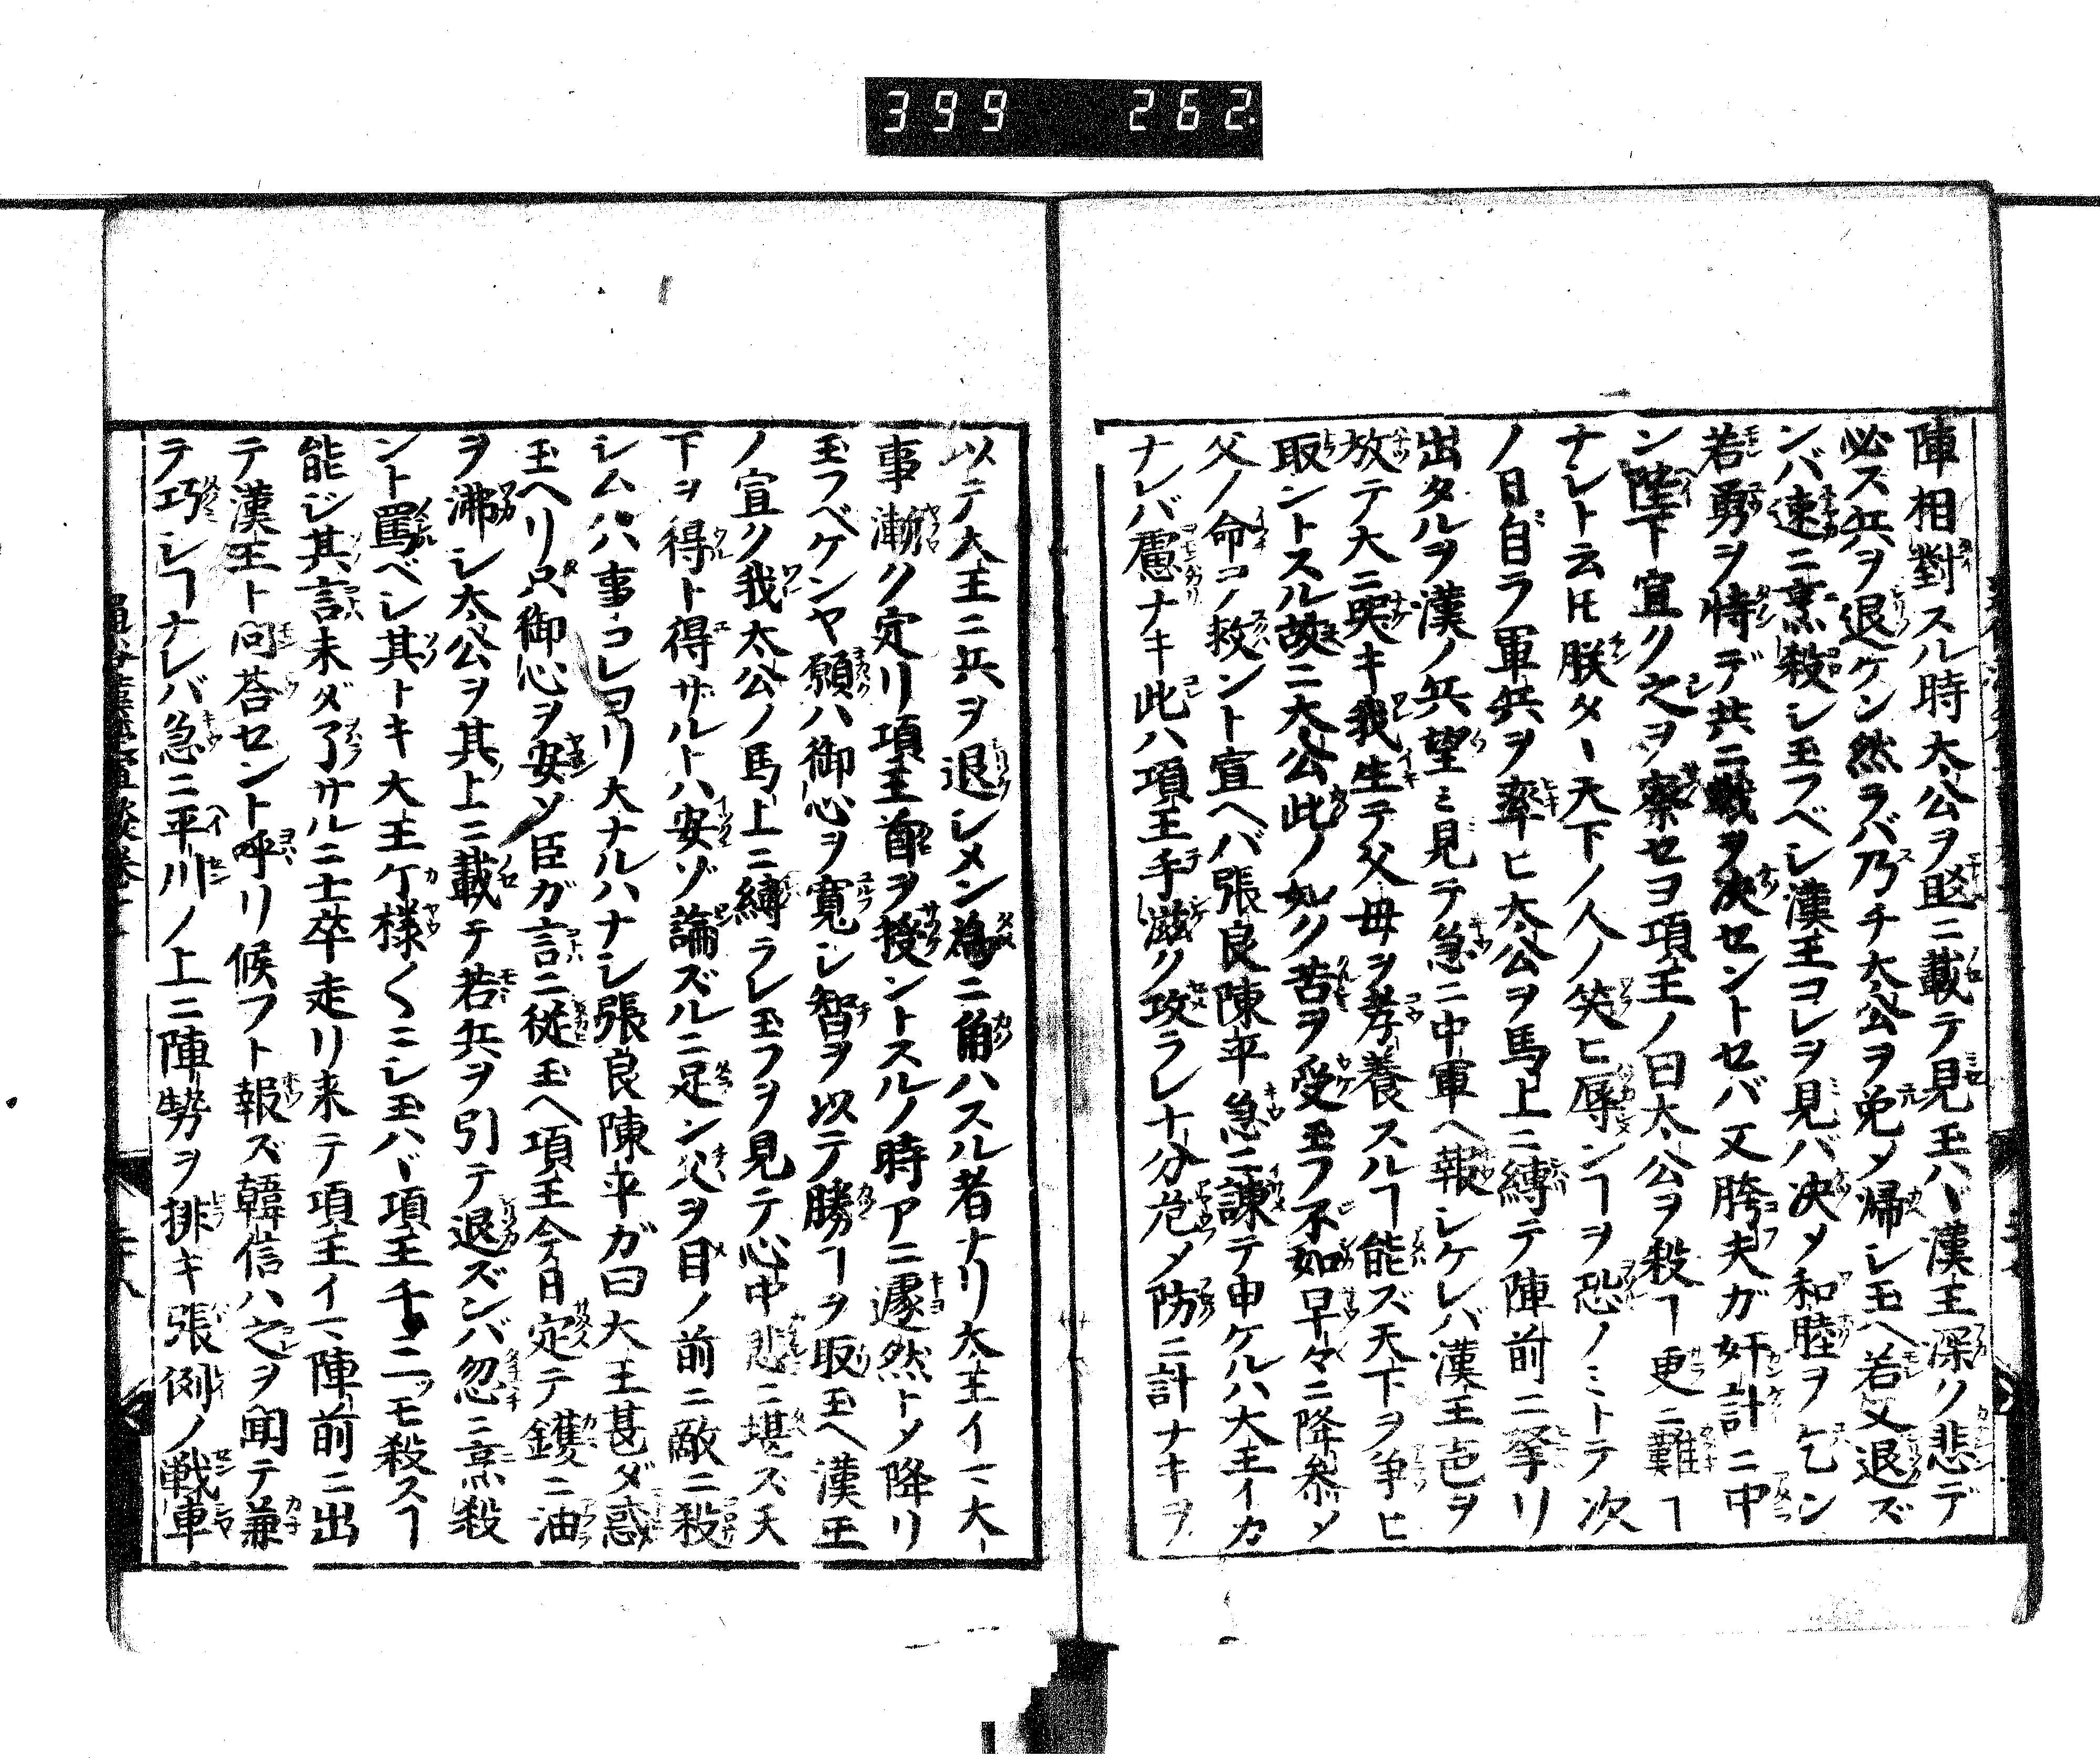 399 262
陣相對スル時太公ヲ爼ニ載テ見セ玉ハヾ漢王深ク悲デ
必ス兵ヲ退ケン然ラバ乃チ太公ヲ免メ帰シ玉ヘ若又退ズ
ンバ速ニ烹殺シ玉フベシ漢王コレヲ見バ決メ和睦ヲ乞ン
若勇ヲ恃デ共ニ戦ヲ决セントセバ又胯夫ガ奸計ニ中
ン陛下宜ク之ヲ察セヨ項王ノ曰太公ヲ殺ヿ更ニ難ヿ
ナレト云𪜈朕ター天下ノ人ノ笑ヒ辱ンヿヲ恐ノミトテ次
ノ日自ラ軍兵ヲ率ヒ太公ヲ馬上ニ縛テ陣前ニ拏リ
出タルヲ漢ノ兵望ミ見テ急ニ中軍ヘ報シケレバ漢王色ヲ
放テ大ニ哭キ我生テ父母ヲ孝養スルヿ能ズ天下ヲ争ヒ
取ントスル故ニ太公此ノ如ク苦ヲ受玉フ不如早々ニ降参メ
父ノ命ヲ救ント宣ヘバ張良陳平急ニ諫テ申ケルハ大王イカ
ナレバ慮ナキ此ハ項王手滋ク攻ラレ十分危メ防ニ計ナキヲ
以テ大王ニ兵ヲ退シメン為ニ角ハスル者ナリ大王イマ大
事漸ク定リ項王首ヲ授ントスルノ時アニ遽然トメ降リ
玉フベケンヤ願ハ御心ヲ寛シ智ヲ以テ勝ヿヲ取玉ヘ漢王
ノ宣ク我太公ノ馬上ニ縛ラレ玉フヲ見テ心中悲ニ堪ズ天
下ヲ得ト得ザルトハ安ゾ論ズルニ足ン父ヲ目ノ前ニ敵ニ殺
シムハ事コレヨリ大ナルハナシ張良陳平ガ曰大王甚ダ惑
玉ヘリ只御心ヲ安ソ臣ガ言ニ従玉ヘ項王今日定テ鑊ニ油
ヲ沸シ太公ヲ其上ニ載テ若兵ヲ引テ退ズンバ忽ニ烹殺
ント罵ベシ其トキ大王ケ様〱ニシ玉ハヾ項王千ニ一ツモ殺スヿ
能ジ其言未ダ了サルニ士卒走リ来テ項王イマ陣前ニ出
テ漢王ト問荅セント呼リ候フト報ズ韓信ハ之ヲ聞テ兼
テ巧シヿナレバ急ニ平川ノ上ニ陣勢ヲ排キ張例ノ戦車